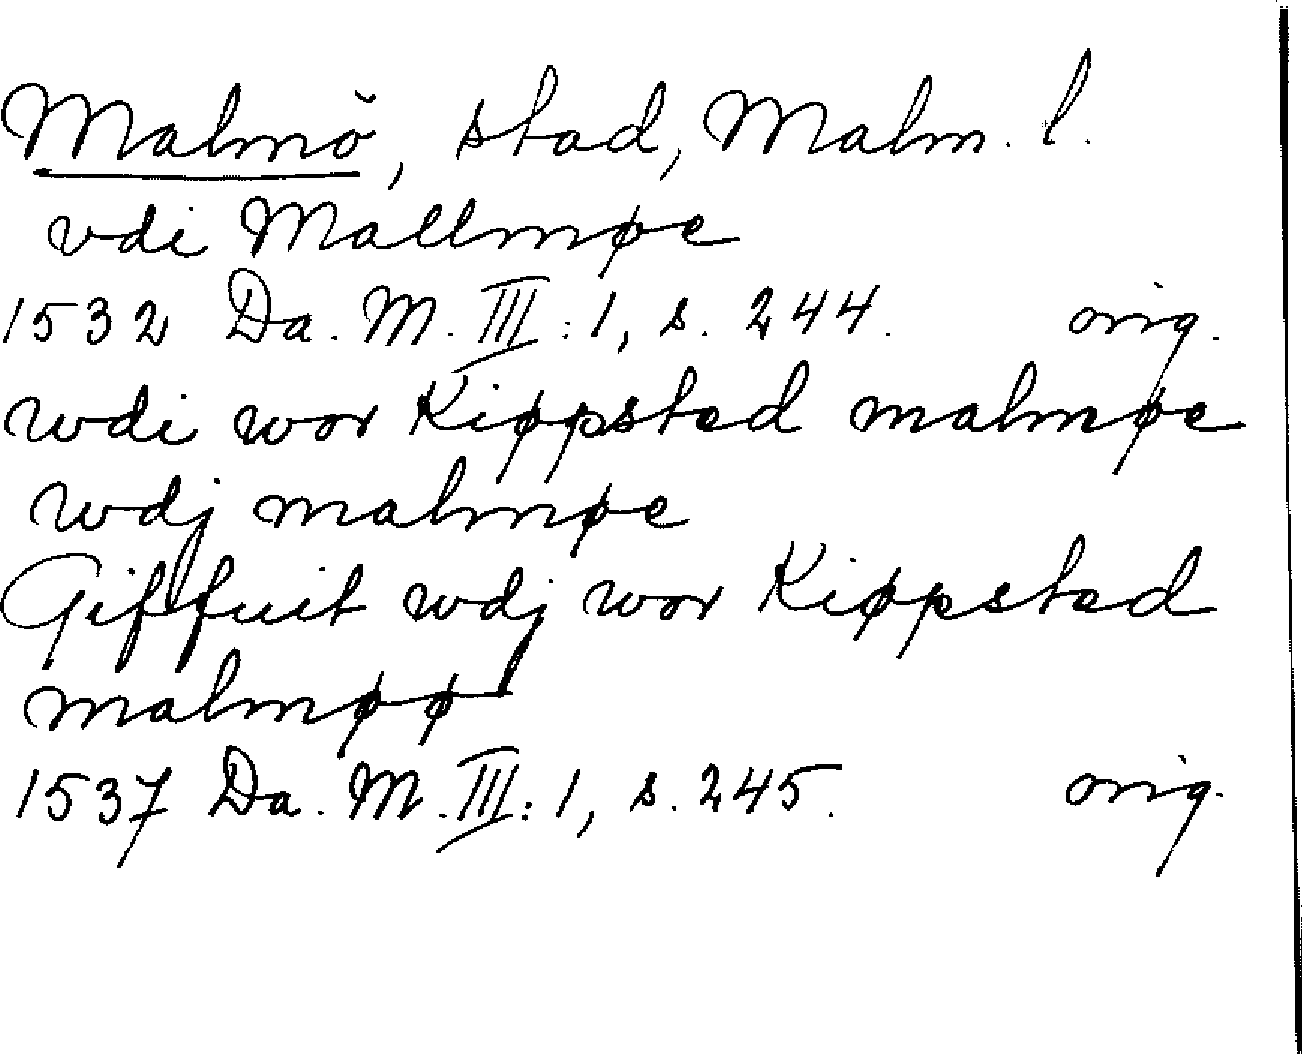 Malmö, stad, Malm. l.
vdi Mallmøe
1532 Da. M. III: 1, s. 244. orig.
wdi wor Kiøpsted malmøe
wdj malmøe
Giffuit wdj wor Kiøpsted
malmøø
1537 Da. M. III: 1, s. 245. orig.